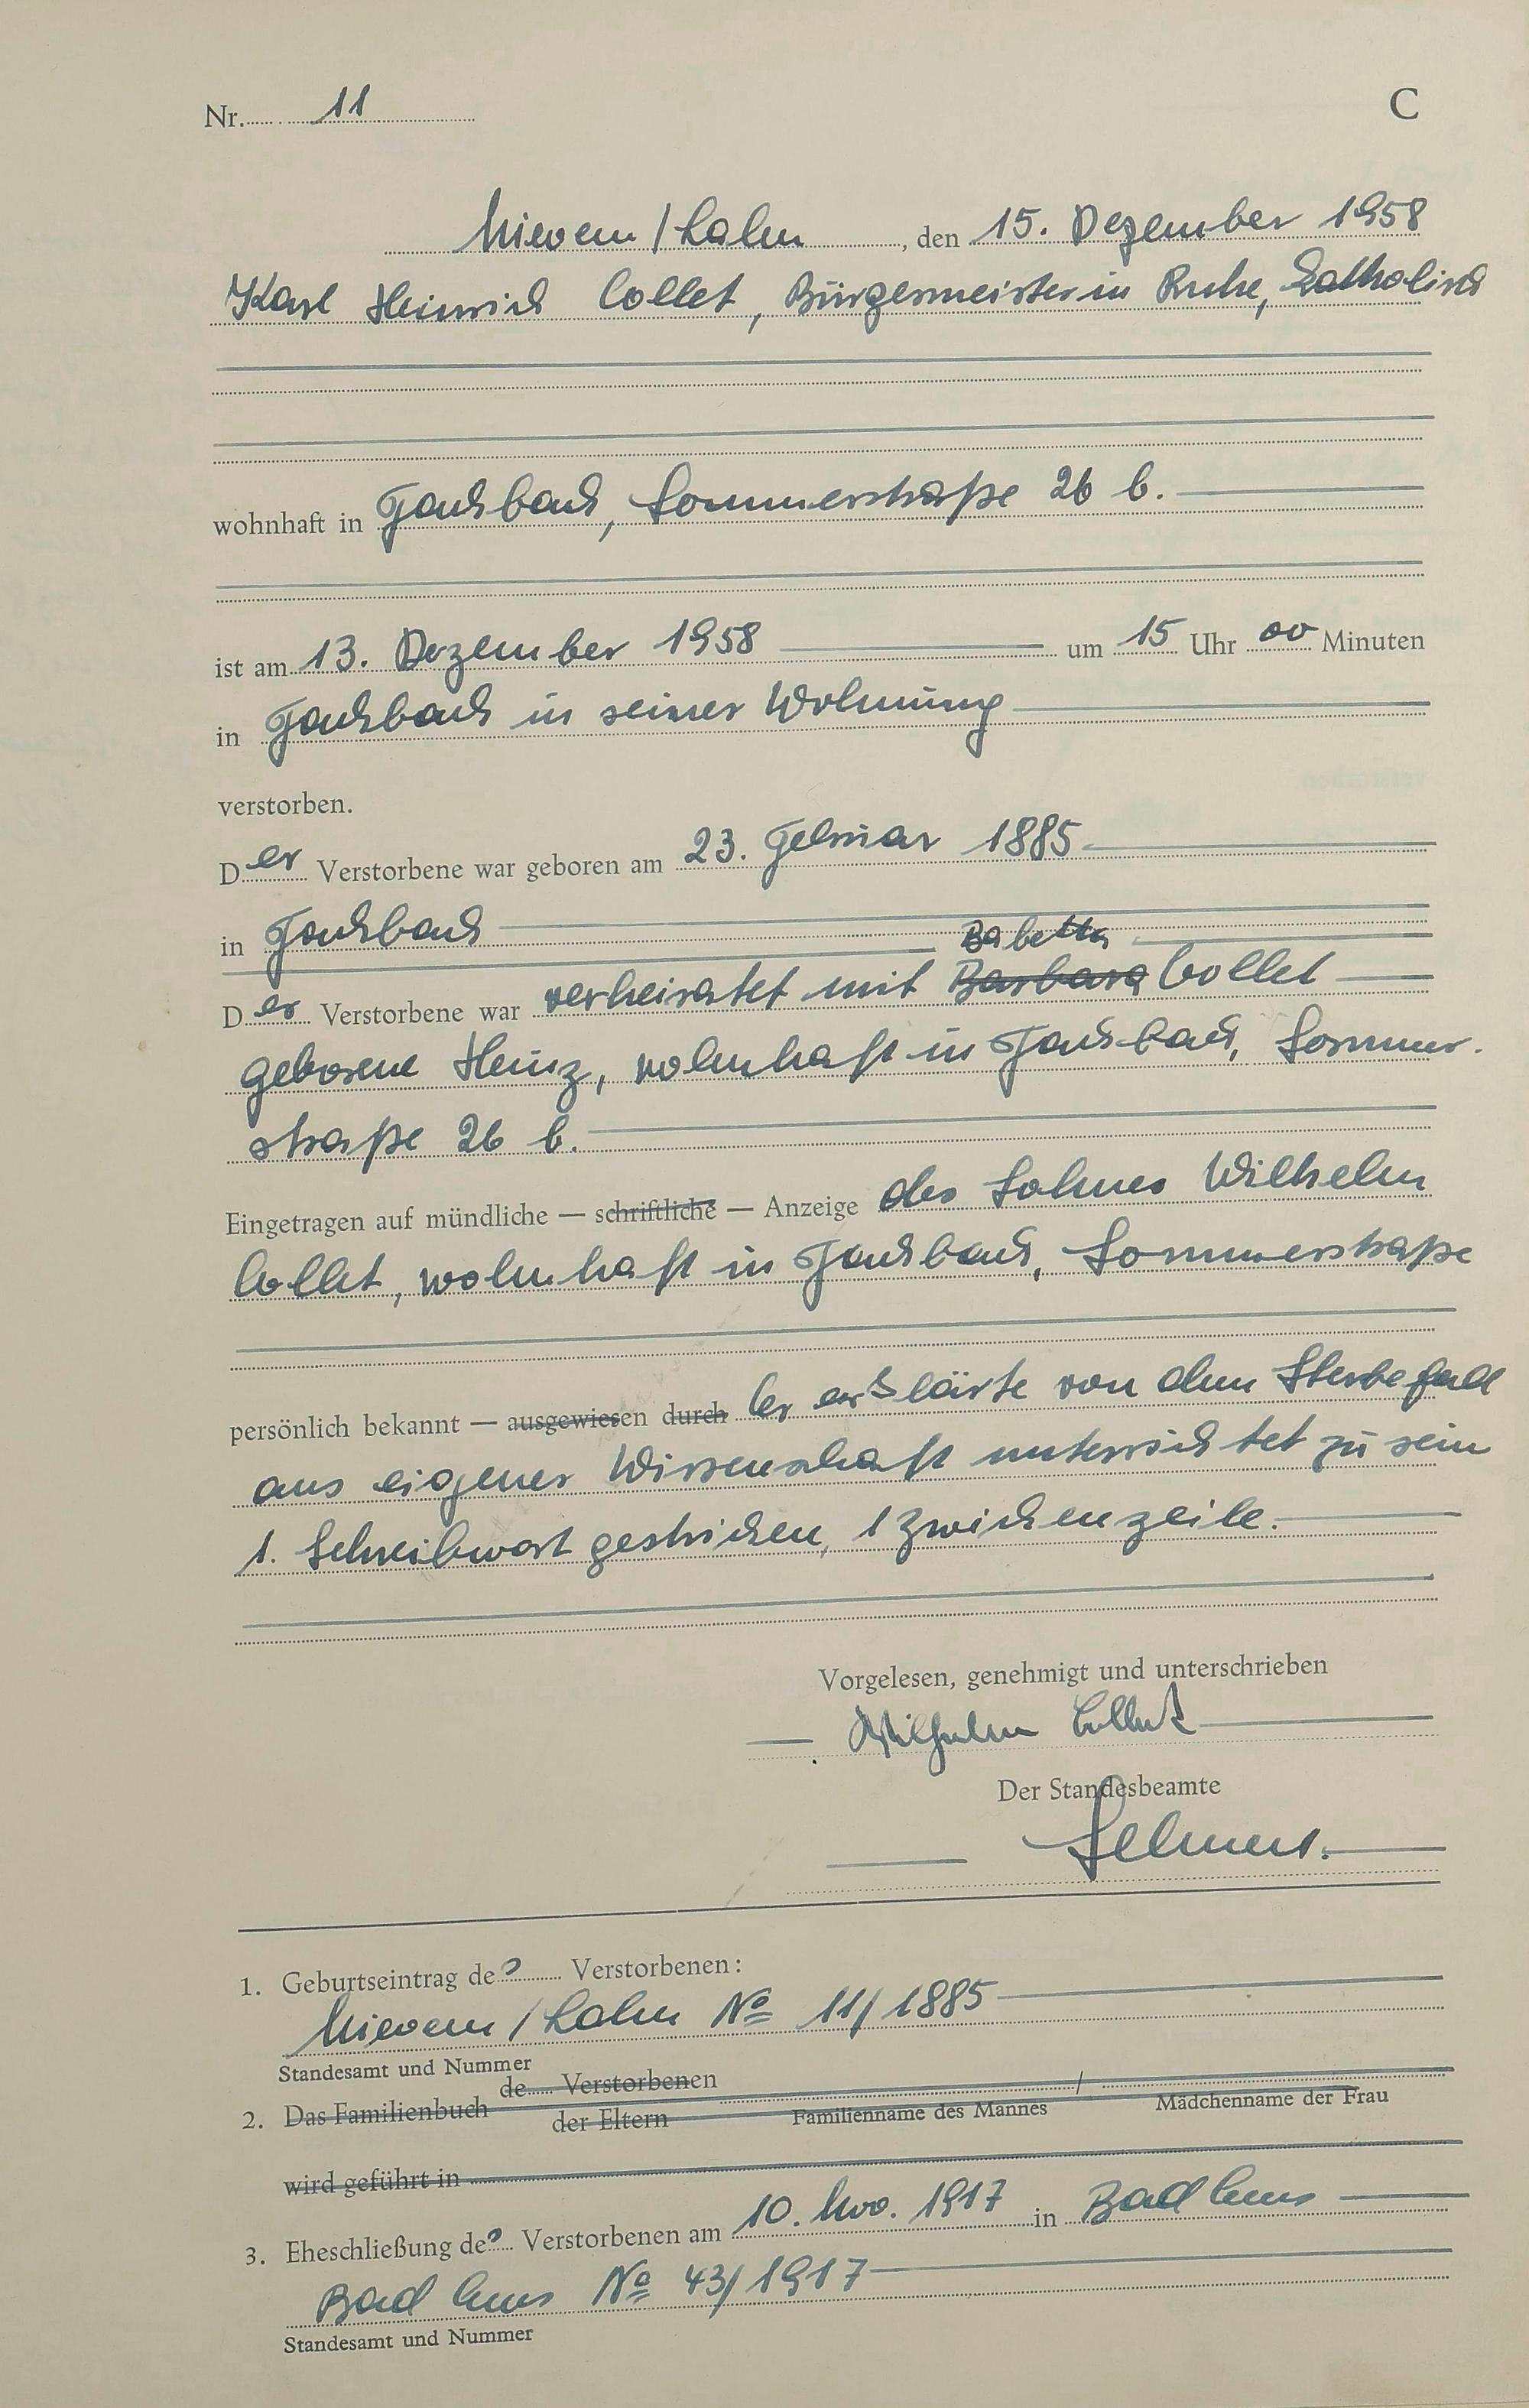 Nr. 11
C
Nievern / Lahn, den 15. Dezember 1958
Karl Heinrich Collet, Bürgermeister in Ruhe, katholisch
wohnhaft in Fachbach, Sommerstraße 26 b.
ist am 13. Dezember 1958 um 15 Uhr 00 Minuten
in Fachbach in seiner Wohnung
verstorben.
Der Verstorbene war geboren am 23. Februar 1885
in Fachbach
Babetta
Der Verstorbene war verheiratet mit Barbara Collet
geborene Heinz, wohnhaft in Fachbach, Sommer-
straße 26 b.
Eingetragen auf mündliche — schriftliche — Anzeige des Sohnes Wilhelm
Collet, wohnhaft in Fachbach, Sommerstraße
persönlich bekannt — ausgewiesen durch Er erklärte von dem Sterbefall
aus eigener Wissenschaft unterrichtet zu sein
1. Schreibwort gestrichen, 1 Zwischenzeile.
Vorgelesen, genehmigt und unterschrieben
Wilhelm Collet
Der Standesbeamte
1. Geburtseintrag des Verstorbenen:
Nievern / Lahn No 11/1885
Standesamt und Nummer
2. Das Familienbuch de Verstorbenen / der Eltern
Familienname des Mannes Mädchenname der Frau
wird geführt in
3. Eheschließung des Verstorbenen am 10. Nov. 1917 in Bad Ems
Bad Ems No 43/1917
Standesamt und Nummer